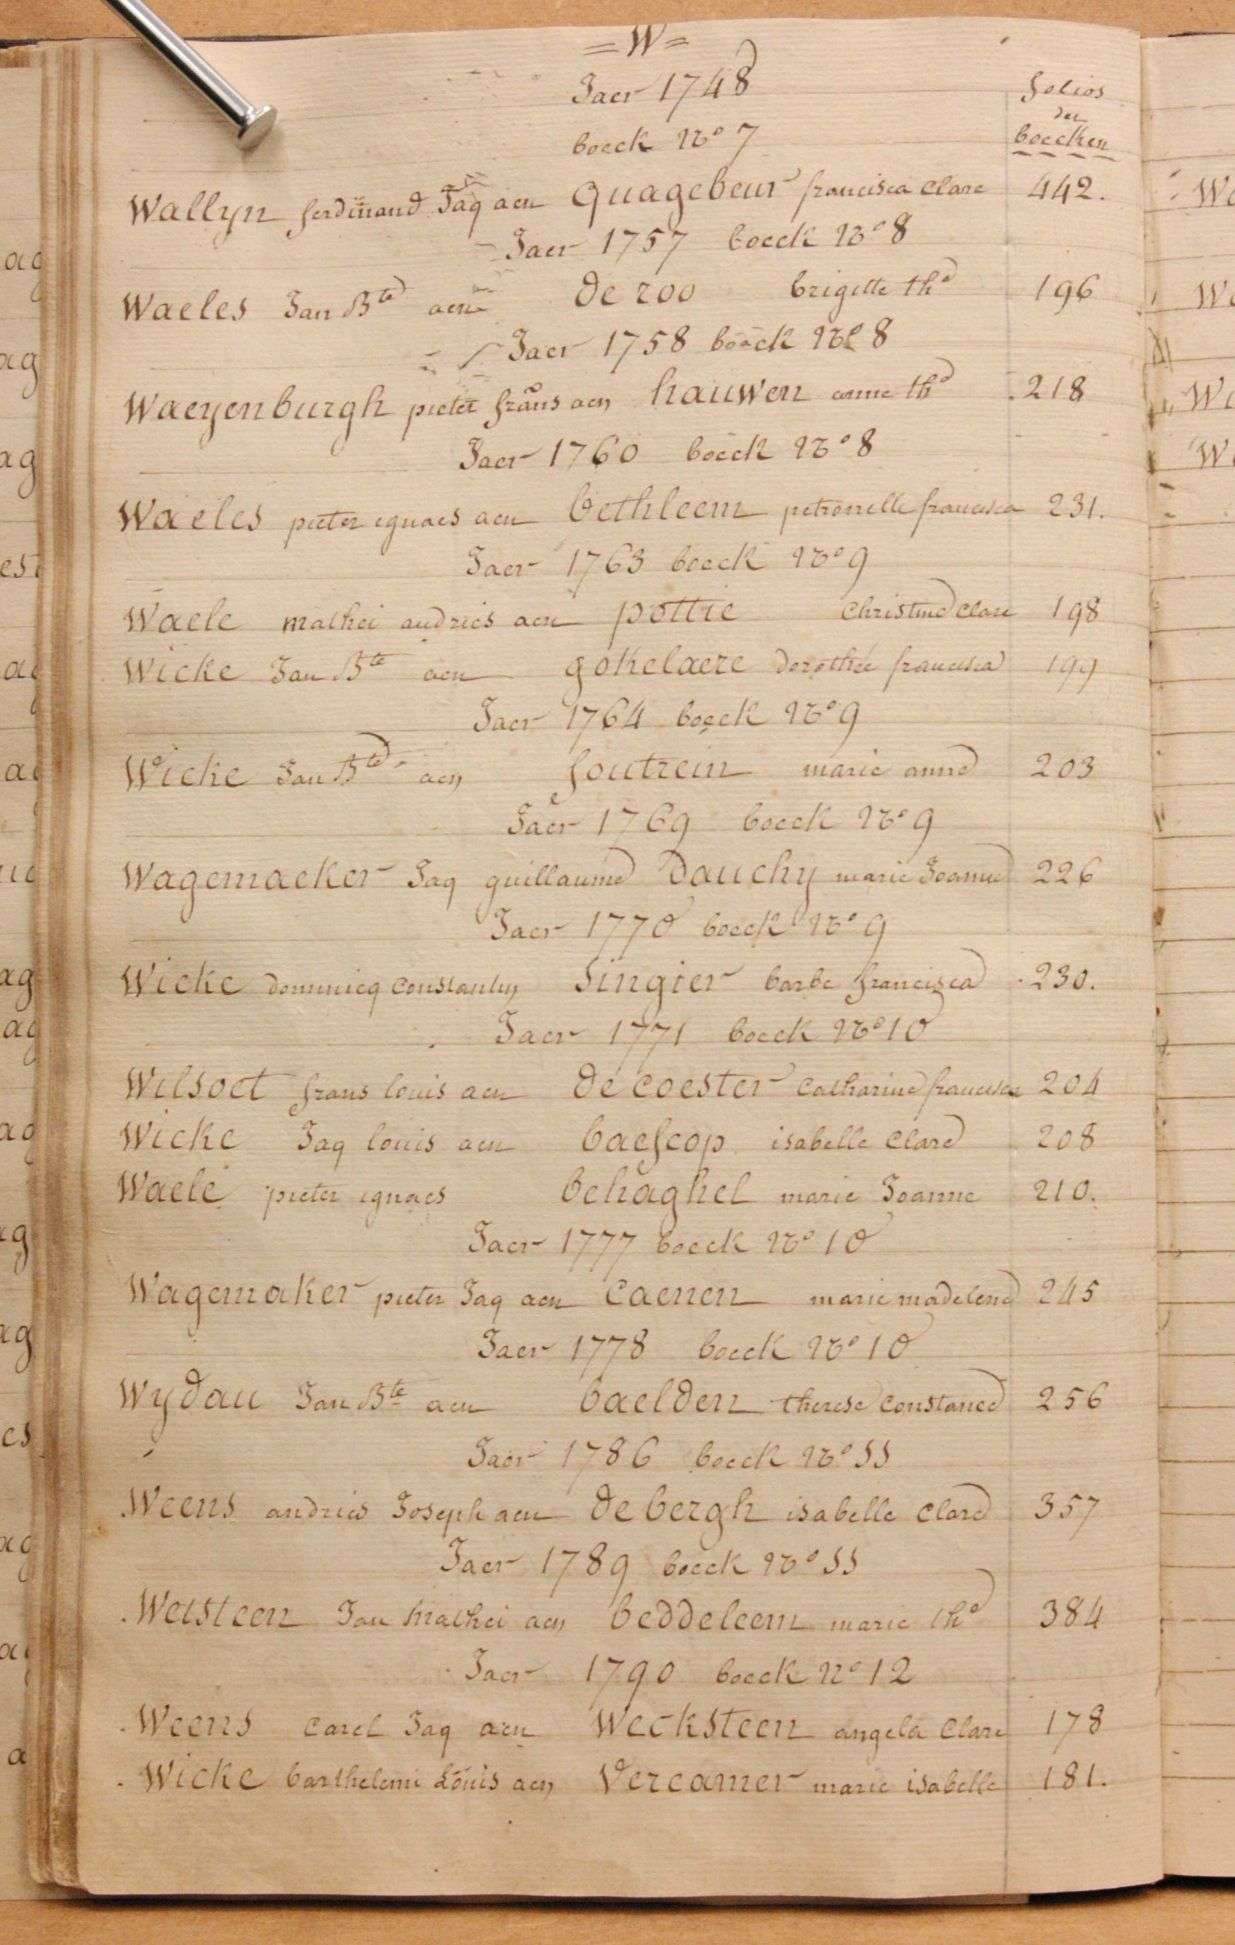 = W =
Jaer 1748
folios
der
boecken
boeck No 7
Wallyn ferdinand Jaq aen Quagebeur francisca Clare 442.
Jaer 1757 boeck No 8
Waeles Jan Bte aen de roo brigitte the 196
Jaer 1758 boeck No 8
Waeyenburgh pieter frans aen hauwen anne the 218
Jaer 1760 boeck No 8
Waeles pieter ignaes aen bethleem petronelle francisca 231.
Jaer 1763 boeck No 9
Waele mathei andries aen pottie Christine Clare 198
Wicke Jan Bte aen gokelaere dorothée francisca 199
Jaer 1764 boeck No 9
Wicke Jan Bte aen soutrein marie anne 203
Jaer 1769 boeck No 9
Wagemaeker Jaq guillaume Dauchy marie Joanne 226
Jaer 1770 boeck No 9
Wicke dominicq Constantin Singier barbe francisca 230.
Jaer 1771 boeck No 10
Wilsoet frans louis aen de coester Catharine francisca 204
Wicke Jaq louis aen baescop isabelle Clare 208
Waele pieter ignaes behaghel marie Joanne 210.
Jaer 1777 boeck No 10
Wagemaker pieter Jaq aen Caenen marie madelene 245
Jaer 1778 boeck No 10
Wydau Jan Bte aen baelden therese Constance 256
Jaer 1786 boeck No 11
Weens andries Joseph aen de bergh isabelle Clare 357
Jaer 1789 boeck No 11
Wetsteen Jan Mathei aen beddeleem marie the 384
Jaer 1790 boeck No 12
Weens Carel Jaq aen Wecksteen angela Clare 178
Wicke barthelemi Louis aen Vercamer marie isabelle 181.